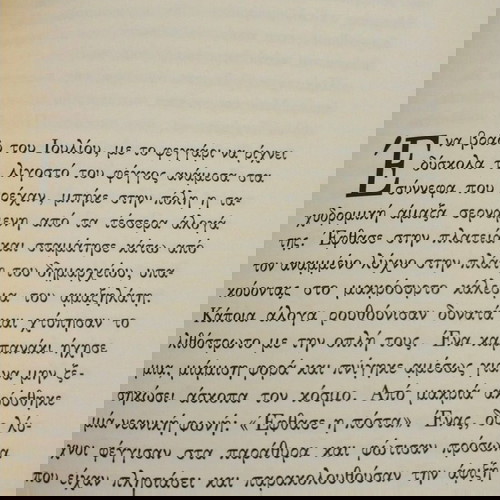 Ένα βράδυ του Ιουλίου, με το φεγγάρι να ρίχνει
δύσκολα το λιγοστό του φέγγος ανάμεσα στα
σύννεφα που έτρεχαν, μπήκε στην πόλη η τα
χυδρομική άμαξα σερνόμενη από τα τέσσερα άλογά
της. Έφθασε στην πλατεία και σταμάτησε κάτω από
τον αναμμένο λύχνο στην πλάκα του δημαρχείου, υπα
κούοντας στο μακρόσυρτο κάλεσμα του αμαξηλάτη.
Κάποια άλογα ρουθούνισαν δυνατά και χτύπησαν το
λιθόστρωτο με την οπλή τους. Ένα καμπανάκι ήχησε
μια φορά και πνίγηκε αμέσως για να μην ξε
σηκώσει άσκοπα τον κόσμο. Από μακριά ακούσθηκε
μια νεανική φωνή: «Έφθασε η πόστα» Ένας δυο λύ
χνοι φέγγισαν στα παράθυρα και φώτισαν πρόσωπα
που είχαν πλησιάσει και παρακολουθούσαν την άφιξη